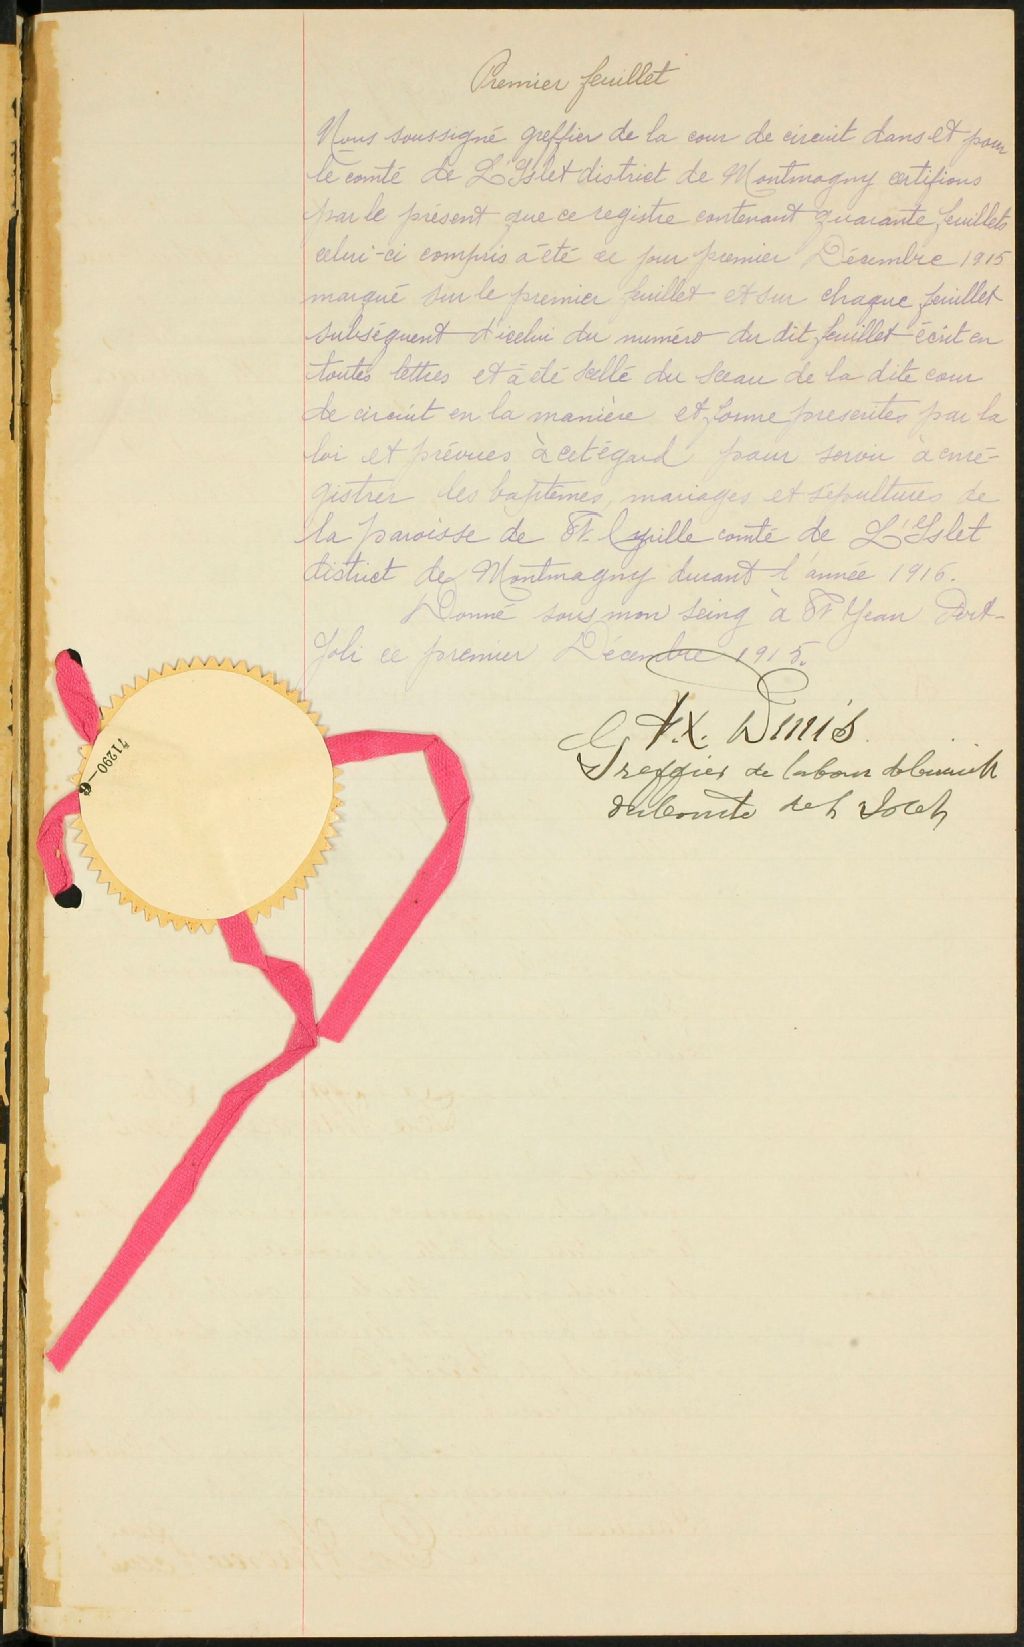 Premier feuillet
Nous soussigné greffier de la cour de circuit dans et pour
le comté de L'Islet district de Montmagny certifions
par le présent que ce registre contenant quarante feuillets
celui-ci compris a été ce jour premier Décembre 1915
marqué sur le premier feuillet et sur chaque feuillet
subséquent d'icelui du numéro du dit feuillet écrit en
toutes lettres et a été scellé du sceau de la dite cour
de circuit en la manière et forme prescrites par la
loi et prévues à cet égard pour servir à enré-
gistrer les baptêmes, mariages et sépultures de
la paroisse de St. Cyrille comté de L'Islet
district de Montmagny durant l'année 1916.
Donné sous mon seing à St Jean Port-
Joli ce premier Décembre 1915.
F.X.
Greffier de la Cour de Circuit
du Comté de
71290-6